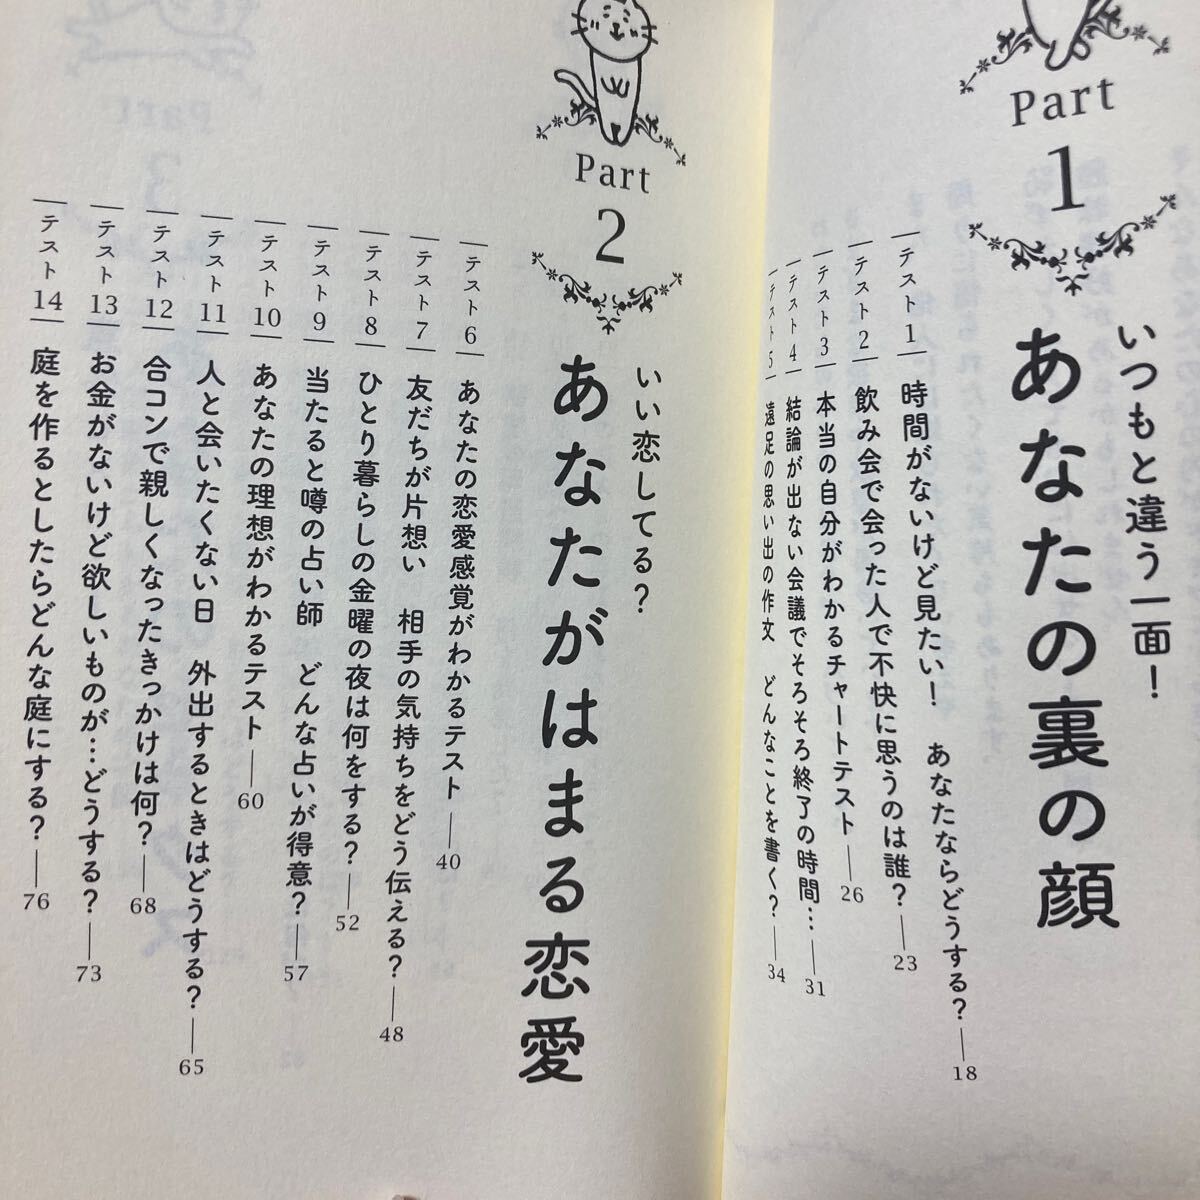 Part
1
いつもと違う一面！
あなたの裏の顔
テスト1 時間がないけど見たい！ あなたならどうする？ 18
テスト2 飲み会で会った人で不快に思うのは誰？ 23
テスト3 本当の自分がわかるチャートテスト 26
テスト4 結論が出ない会議でそろそろ終了の時間… 31
テスト5 遠足の思い出の作文 どんなことを書く？ 34
Part
2
いい恋してる？
あなたがはまる恋愛
テスト6 あなたの恋愛感覚がわかるテスト 40
テスト7 友だちが片想い 相手の気持ちをどう伝える？ 48
テスト8 ひとり暮らしの金曜の夜は何をする？ 52
テスト9 当たると噂の占い師 どんな占いが得意？ 57
テスト10 あなたの理想がわかるテスト 60
テスト11 人と会いたくない日 外出するときはどうする？ 65
テスト12 合コンで親しくなったきっかけは何？ 68
テスト13 お金がないけど欲しいものが…どうする？ 73
テスト14 庭を作るとしたらどんな庭にする？ 76